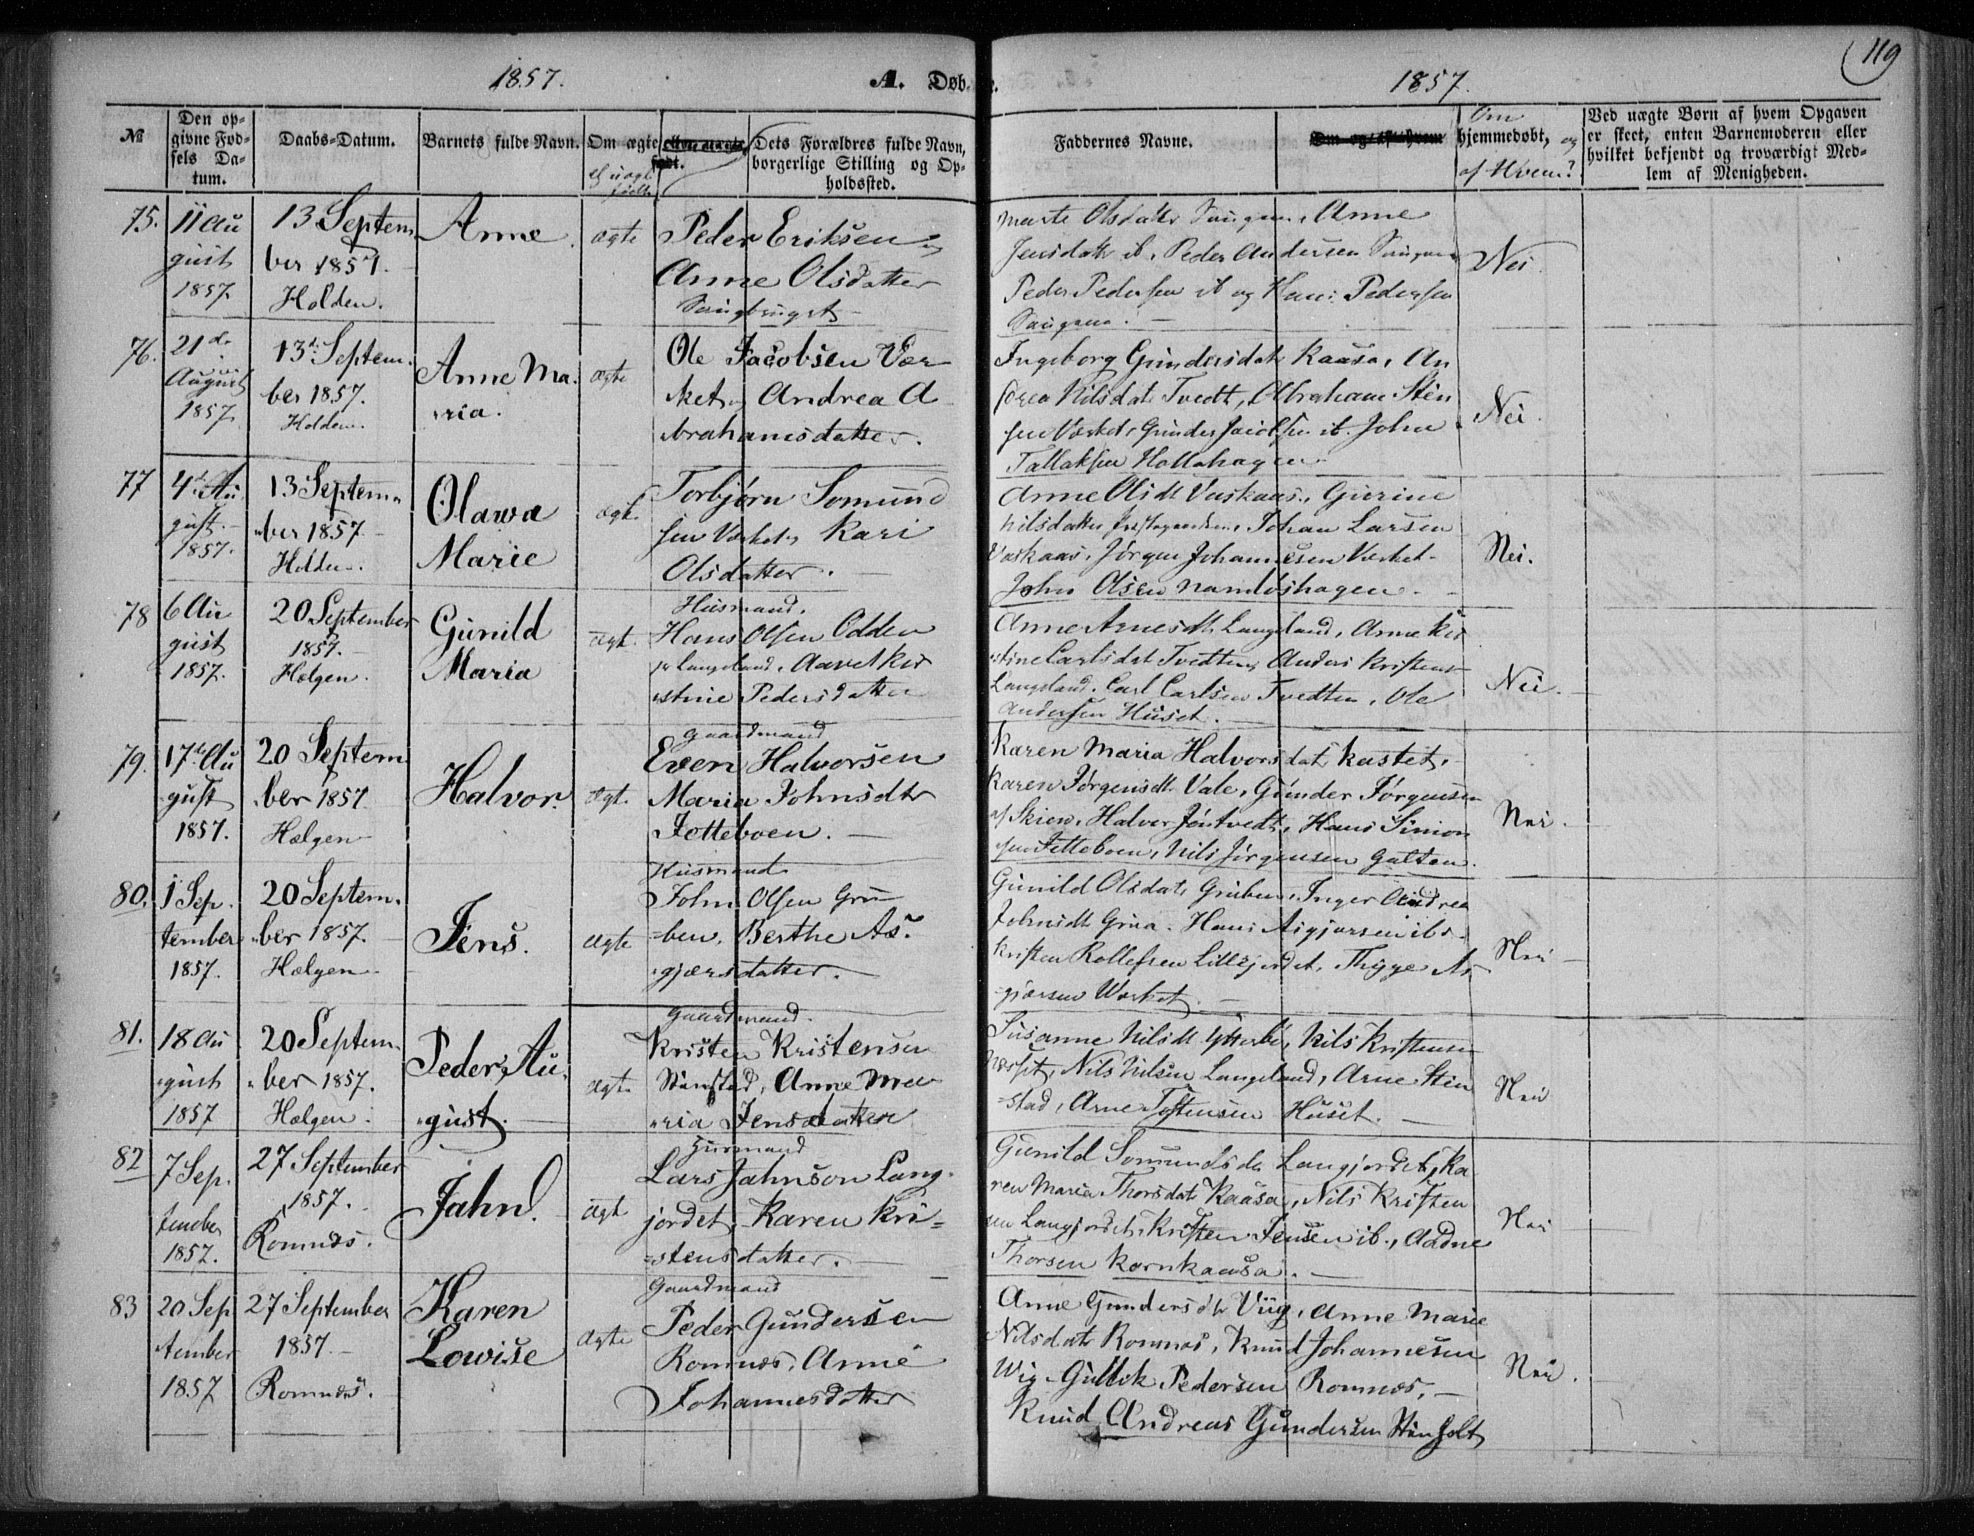 1857.
A. Døb.
e.
1857.
119
№
Den op-
givne Fød-
sels Da-
tum.
Daabs-Datum.
Barnets fulde Navn.
Om ægte
født.
Dets Forældres fulde Navn,
borgerlige Stilling og Op-
holdssted.
Faddernes Navne.
Om
hjemmedøbt, og
af Hvem?
Ved uægte Børn af hvem Opgaven
er skeet, enten Barnemoderen eller
hvilket bekjendt og troværdigt Med-
lem af Menigheden.
75.
11 Au
gust
1857.
13 Septem
ber 1857.
Holden.
Anne
ægte
Peder Eriksen
Anne Olsdatter
Marte Olsdatter Anne
Jensdatt ib, Peder Andersen
Peder Pedersen ib og Hans Pedersen
Nei
76.
21de
August
1857
13de Septem.
ber 1857.
Holden.
Anne Ma.
ria.
ægte
Ole Jacobsen Vær
ket, Andrea A
brahamsdatter.
Ingeborg Gundersdat Kaasa, An
drea Nilsdat Tvedt, Abraham Sten
sen Værket, Gunder Jacobsen ib. John
Tallaksen Hollahagen
Nei.
77
4de Au
gust.
1857.
13 Septem
ber 1857.
Holden.
Olawa
Marie
ægt.
Torbjørn Somund
sen Værket, Kari
Olsdatter.
Anne Olsdt Vaskaas, Gurine
Nilsdatter Johan Larsen
Vaskaas, Jørgen Johannesen Værket
John Olsen Namløshagen.
Nei.
78
6 Au
gust
1857.
20 September
1857.
Helgen.
Gunild
Maria
ægt.
Husmand.
Hans Olsen Odden
Langeland, Aavet Kir
stine Pedersdatter
Anne Arnesdt Langeland, Anne Kir
stine Carlsdat Tvedten, Anders Kristens
Langeland, Carl Carlsen Tvedten, Ole
Andersen Huset.
Nei.
79.
17de Au
gust
1857.
20 Septem
ber 1857
Helgen
Halvor.
ægt.
Gaardmand
Even Halvorsen
Maria Johnsdtr
Jotteboen.
Karen Maria Halvorsdat Kastet,
Karen Jørgensdt Vale, Gunder Jørgensen
af Skien, Halvor Jøntvedt, Hans Simon
sen Jotteboen, Nils Jørgensen Galten.
Nei.
80.
1 Sep.
tember
1857.
20 Septem.
ber 1857.
Helgen
Jens.
ægte
Husmand
John Olsen Gru
ben, Berthe As.
gjersdatter.
Gunild Olsdat Gruben, Inger Andrea
Johnsdt Grua. Hans Asgjersen ib.
Kristen Rollefsen Lillejordet, Thyge As
gjersen Værket.
Nei
81.
18 Au
gust
1857
20 Septem.
ber 1857.
Helgen.
Peder Au.
gust.
ægte
Gaardmand.
Kristen Kristensen
Stenstad, Anne Ma
ria Jensdatter
Susanne Nilsdt Ytterbø, Nils Kristensen
Nils Nilsen Langeland, Arne Sten
stad, Arne Tostensen Huset.
Nei
82
7 Sep.
tember
1857.
27 September
1857.
Romnes.
Jahn.
ægt
Husmand
Lars Jahnson Lang.
jordet, Karen Kri-
stensdatter.
Gunild Somundsda Langjordet, Ka
ren Maria Thorsdat Kaasa, Nils Kristen
sen Langjordet, Kristen Jensen ib., Aadne
Thorsen Kornkaasa.
Nei
83
20 Sep
tember
1857
27 September
1857.
Romnes.
Karen
Lowise
ægte
Gaardmand
Peder Gundersen
Romnes, Anne
Johannesdatter
Anne Gundersdt Viig, Anne Marie
Nilsdatt Romnes, Knud Johannesen
Wig. Gullik Pedersen Romnes,
Knud Andreas Gundersen Stenholt
Nei.